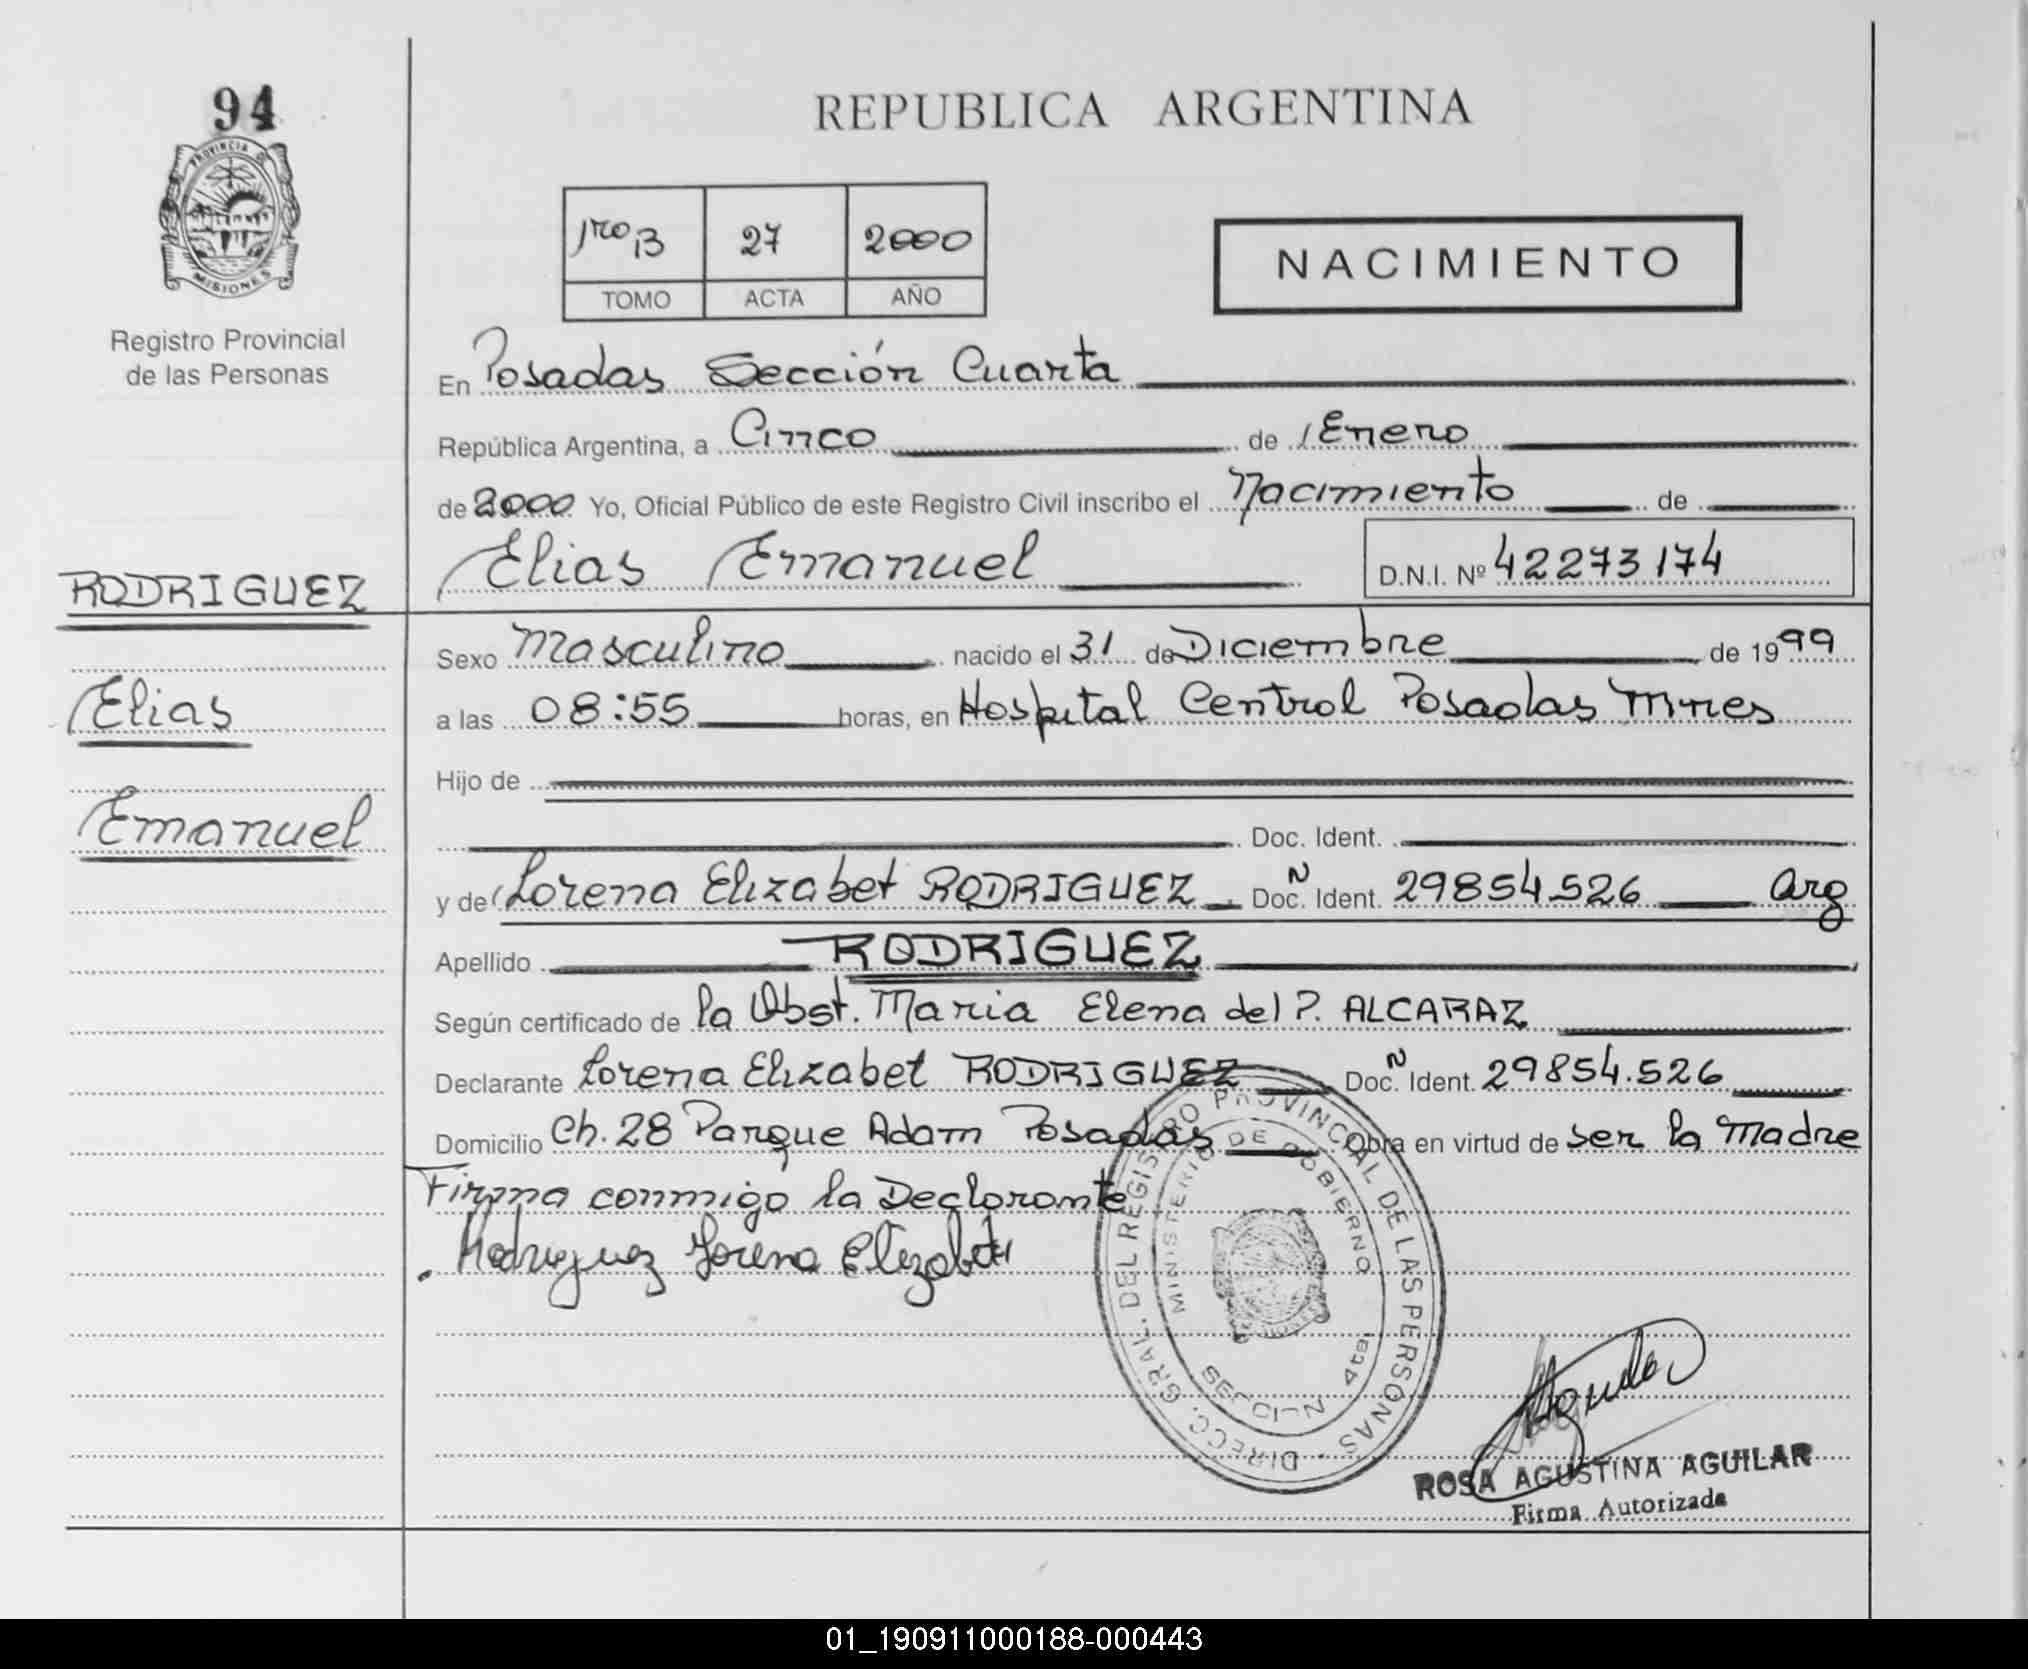 94
PROVINCIA DE
MISIONES
Registro Provincial
de las Personas
RODRIGUEZ
Elias
Emanuel
REPUBLICA ARGENTINA
1ro B 27 2000
TOMO ACTA AÑO
NACIMIENTO
En Posadas Sección Cuarta
República Argentina, a Cinco de Enero
de 2000 Yo, Oficial Público de este Registro Civil inscribo el Nacimiento de
Elias Emanuel D.N.I. Nº 42273174
Sexo Masculino nacido el 31 de Diciembre de 1999
a las 08:55 horas, en Hospital Central Posadas Mnes
Hijo de
Doc. Ident.
y de Lorena Elizabet RODRIGUEZ Doc. N Ident. 29854.526 Arg
Apellido RODRIGUEZ
Según certificado de la Obst. Maria Elena del P. ALCARAZ
Declarante Lorena Elizabet RODRIGUEZ Doc. N Ident. 29854.526
Domicilio Ch. 28 Parque Adam Posadas Obra en virtud de ser la Madre
Firma conmigo la Declarante
Rodriguez Lorena Elizabet
DIRECC. GRAL. DEL REGISTRO PROVINCIAL DE LAS PERSONAS
MINISTERIO DE GOBIERNO
SECCION 4ta.
Aguilar
ROSA AGUSTINA AGUILAR
Firma Autorizada
01_190911000188-000443